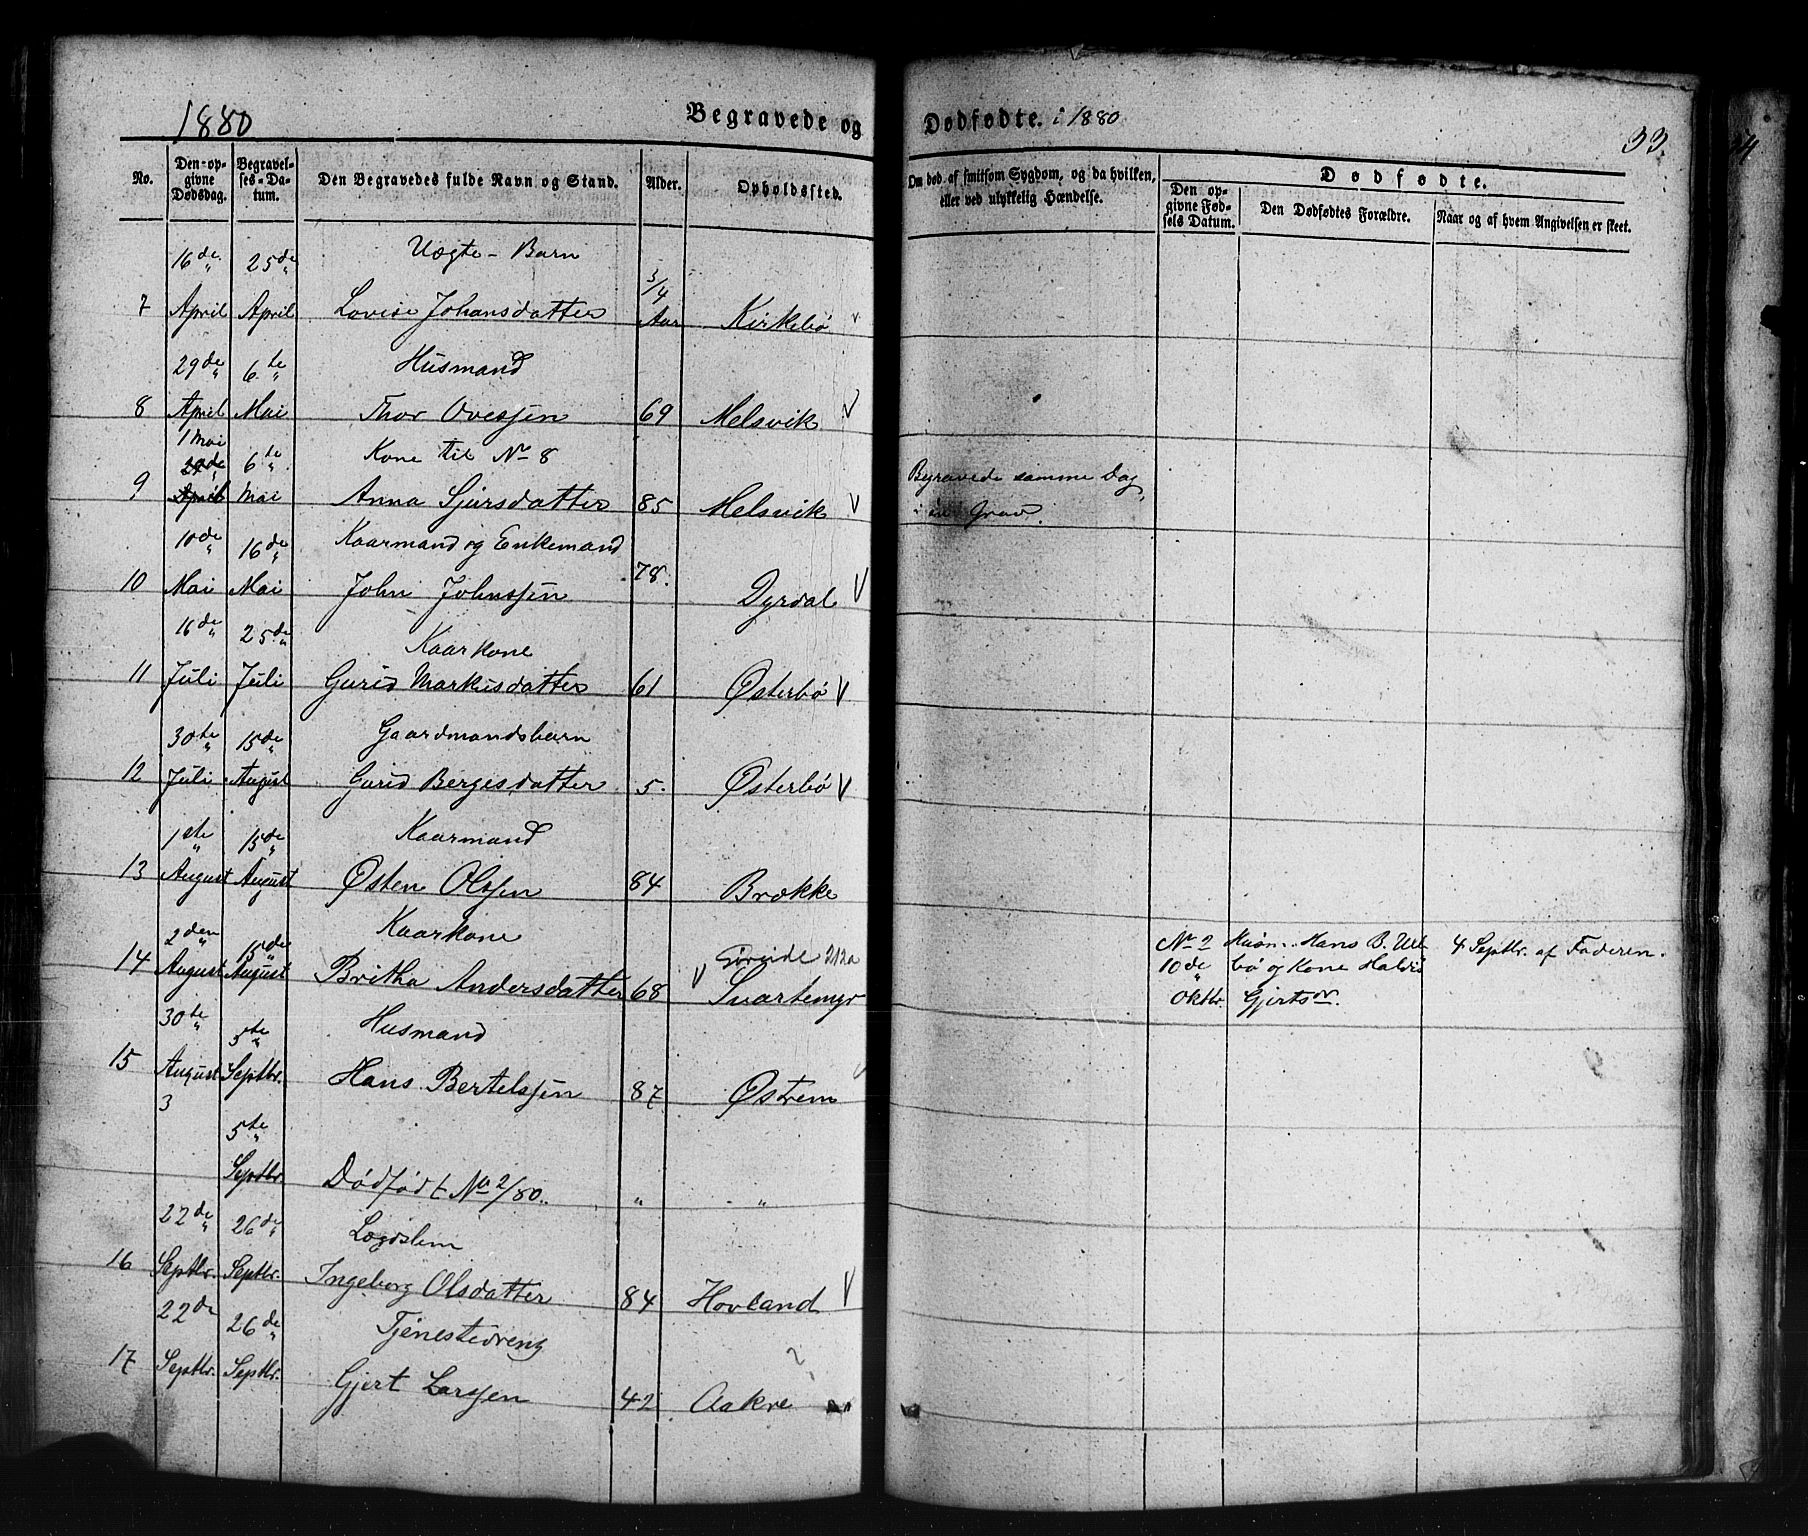 1880 Begravede og Dødfødte. i 1880 33.
No. Den opgivne Dødsdag. Begravelses-Datum. Den Begravedes fulde Navn og Stand. Alder. Opholdssted. Om død af smitsom Sygdom, og da hvilken, eller ved ulykkelig Hændelse. Dødfødte. Den opgivne Fødsels Datum. Den Dødfødtes Forældre. Naar og af hvem Angivelsen er skeet.
16de 25de Uægte-Barn 3/4
7 April April Lovise Johansdatter Aar Kirkebø
29de 6te Husmand
8 April Mai Thor Ovessen 69 Melsvik
1 Mai 6te Kone til No 8
9 April Mai Anna Sjursdatter 85 Melsvik Begravede samme Dag i en Grav.
10de 16de Kaarmand og Enkemand
10 Mai Mai John Johnssen 78. Dyrdal
16de 25de Kaarkone
11 Juli Juli Gurid Markusdatter 61 Østerbø
30te 15de Gaardmandsbarn
12 Juli August Gurid Bergesdatter 5. Østerbø
1ste 15de Kaarmand
13 August August Østen Olssen 84 Brække
2den 15de Kaarkone Søreide 212a
14 August August Britha Andersdatter 68 Svartemyr
No 2 10de Oktbr. Hans B. bø og Kone Gjertsdr. 4 Septbr. af Faderen.
30te 5te Husmand
15 August Septbr. Hans Bertelssen 87 Østrem
3
5te
Septbr. Dødfødt No 2/80. " "
22de 26de Lægdslem
16 Septbr. Septbr. Ingeborg Olsdatter 84 Hovland
22de 26de Tjenestedreng
17 Septbr. Septbr. Gjert Larssen 42 Aakre